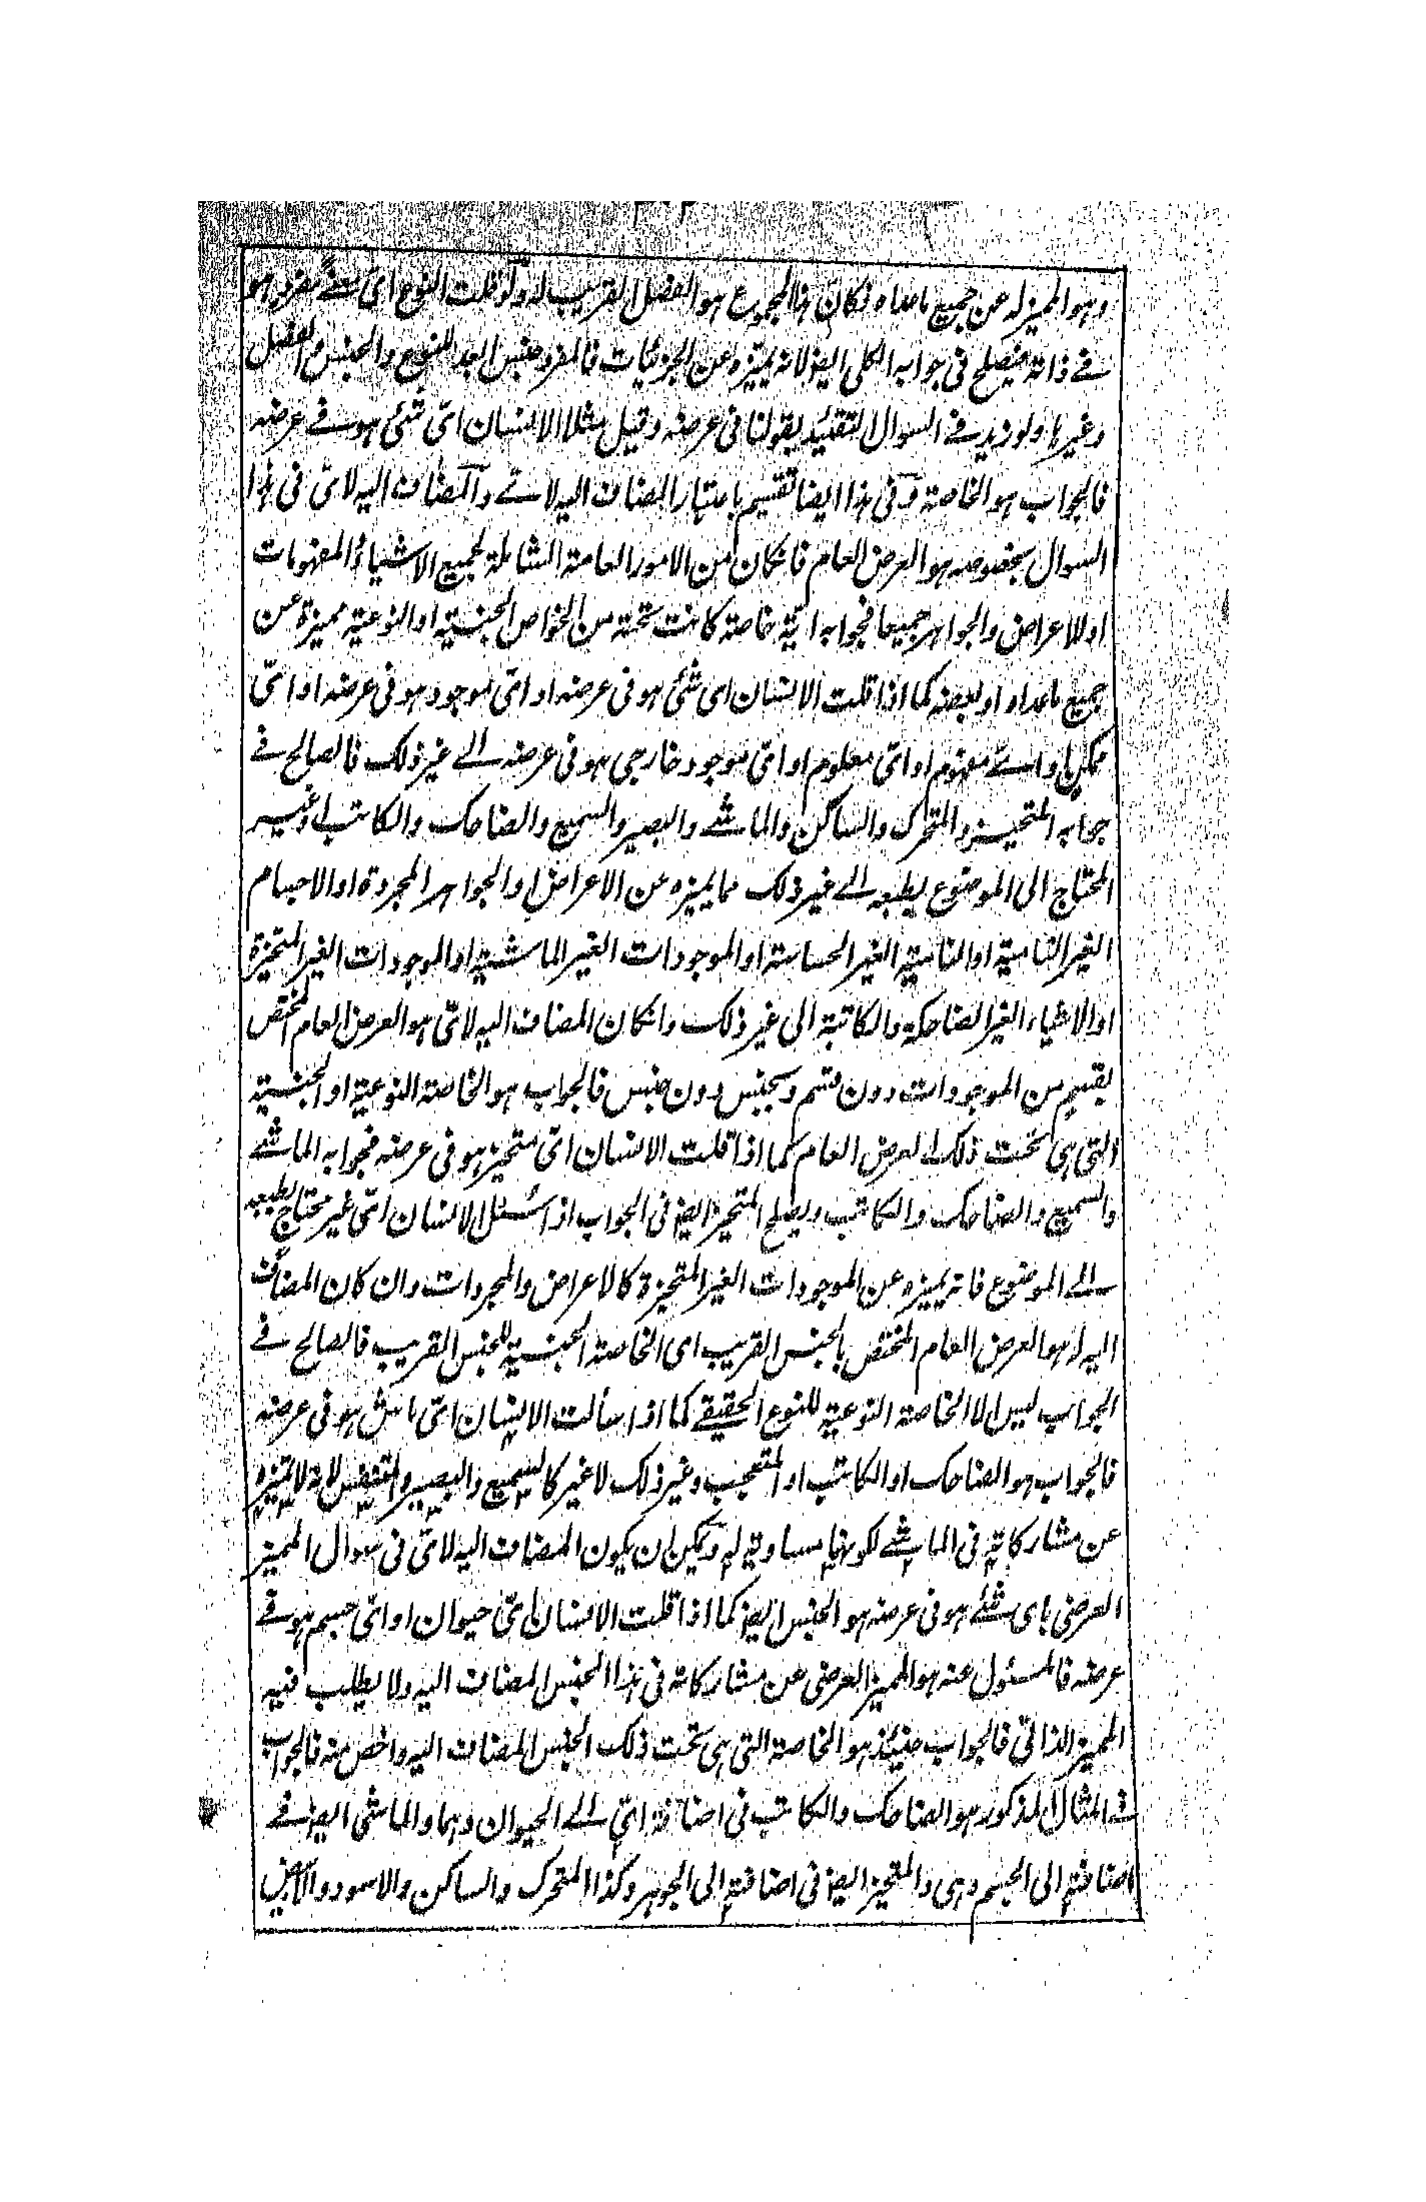 وهو المميز له عن جميع ما عداه فكان هذا المجموع هو الفصل القريب له ولو قلت النوع اى شئ مفرد هو
فے ذاته فيصلح فى جوابه الكلى ايضا لانه يميزه عن الجزئيات فالمفرد جنس ابعد للنوع والجنس والفصل
وغيرها ولو زيد فے السوال التقئيد بقولنا فى عرضه وقيل مثلا الانسان اىّ شئى هو فے عرضه
فالجواب هو الخاصة وفى هذا ايضا تقسيم باعتبار المضاف اليه لاىّ والمضاف اليه لاىّ فى هذا
السوال بخصوصه هو العرض العام فانكان من الامور العامة الشاملة لجميع الاشياء والمفهومات
او للاعراض والجواهر جميعا فجوابه ايّة خاصة كانت تحته من الخواص الجنسية او النوعية مميزة عن
جميع ما عداه او بعضه كما اذا قلت الانسان اى شئ هو فى عرضه او اىّ موجود هو فى عرضه او اىّ
ممكن او اىّ مفهوم او اىّ معلوم او اىّ موجود خارجى هو فى عرضه الے غير ذلك فالصالح فے
جوابه المتحيز والمتحرك والساكن والماشے والبصير والسميع والضاحك والكاتب او غير
المحتاج الى الموضوع بطبعه الے غير ذلك مما يميزه عن الاعراض او الجواهر المجردة او الاجسام
الغير النامية او النامية الغير الحساسة او الموجودات الغير الماشية او الموجودات الغير المتحيزة
او الاشياء الغير الضاحكة والكاتبة الى غير ذلك وانكان المضاف اليه لاىّ هو العرض العام المختص
بقسم من الموجودات دون قسم وبجنس دون جنس فالجواب هو الخاصة النوعية او الجنسية
التى هى تحت ذلك العرض العام كما اذا قلت الانسان اىّ متحيز هو فى عرضه فجوابه الماشے
والسميع والضاحك والكاتب ويصلح المتحيز ايضا فى الجواب اذا سئل الانسان اىّ غير محتاج بطبعه
الے الموضوع فانه يميزه عن الموجودات الغير المتحيزة كالاعراض والمجردات وان كان المضاف
اليه له هو العرض العام المختص بالجنس القريب اى الخاصة الجنسية للجنس القريب فالصالح فے
الجواب ليس الا الخاصة النوعية للنوع الحقيقے كما اذا سألت الانسان اىّ ماش هو فى عرضه
فالجواب هو الضاحك او الكاتب او المتعجب وغير ذلك لا غير كالسميع والبصير والمتنفس لانه لا تميزه
عن مشاركاته فى الماشے لكونها مساوية له ويمكن ان يكون المضاف اليه لاىّ فى سوال المميز
العرضى باى شئے هو فى عرضه هو الجنس ايضا كما اذا قلت الانسان اىّ حيوان او اىّ جسم هو فے
عرضه فالمسئول عنه هو المميز العرضى عن مشاركاته فى هذا الجنس المضاف اليه ولا يطلب فيه
المميز الذاتى فالجواب حينئذ هو الخاصة التى هى تحت ذلك الجنس المضاف اليه واخص منه فالجواب
فے المثال المذكور هو الضاحك والكاتب فى اضافة اىّ الے الحيوان وهما والماشى ايضا فے
اضافته الى الجسم وهى والمتحيز ايضا فى اضافته الى الجوهر وكذا المتحرك والساكن والاسود والابيض